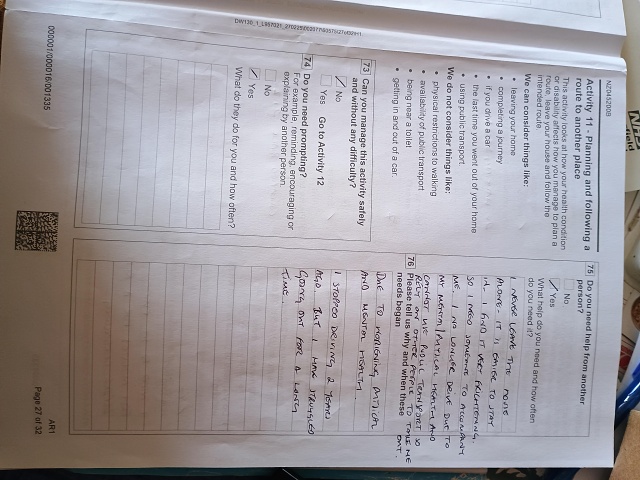 NZ045200B
Activity 11 - Planning and following a
route to another place
This activity looks at how your health condition
or disability affects how you manage to plan a
route, leave your house and follow the
intended route.
We can consider things like:
• leaving your home
• completing a journey
• if you drive a car
• the last time you went out of your home
• using public transport
We do not consider things like:
• physical restrictions to walking
• availability of public transport
• being near a toilet
• getting in and out of a car
73 Can you manage this activity safely
and without any difficulty?
No
Yes Go to Activity 12
74 Do you need prompting?
For example, reminding, encouraging or
explaining by another person.
No
Yes
What do they do for you and how often?
75 Do you need help from another
person?
No
Yes
What help do you need and how often
do you need it?
I NEVER LEAVE THE HOUSE
ALONE - IT IS EASIER TO STAY
IN. I FIND IT VERY FRIGHTENING,
SO I NEED SOMEONE TO ACCOMPANY
ME. I NO LONGER DRIVE DUE TO
MY MENTAL/PHYSICAL HEALTH AND
CANNOT USE PUBLIC TRANSPORT SO
RELY ON OTHER PEOPLE TO TAKE ME
OUT.
76 Please tell us why and when these
needs began
DUE TO WORSENING PHYSICAL
AND MENTAL HEALTH.
I STOPPED DRIVING 2 YEARS
AGO BUT I HAVE STRUGGLED
GOING OUT FOR A LONG
TIME.
AR1
Page 27 of 32
000001/000016/001335